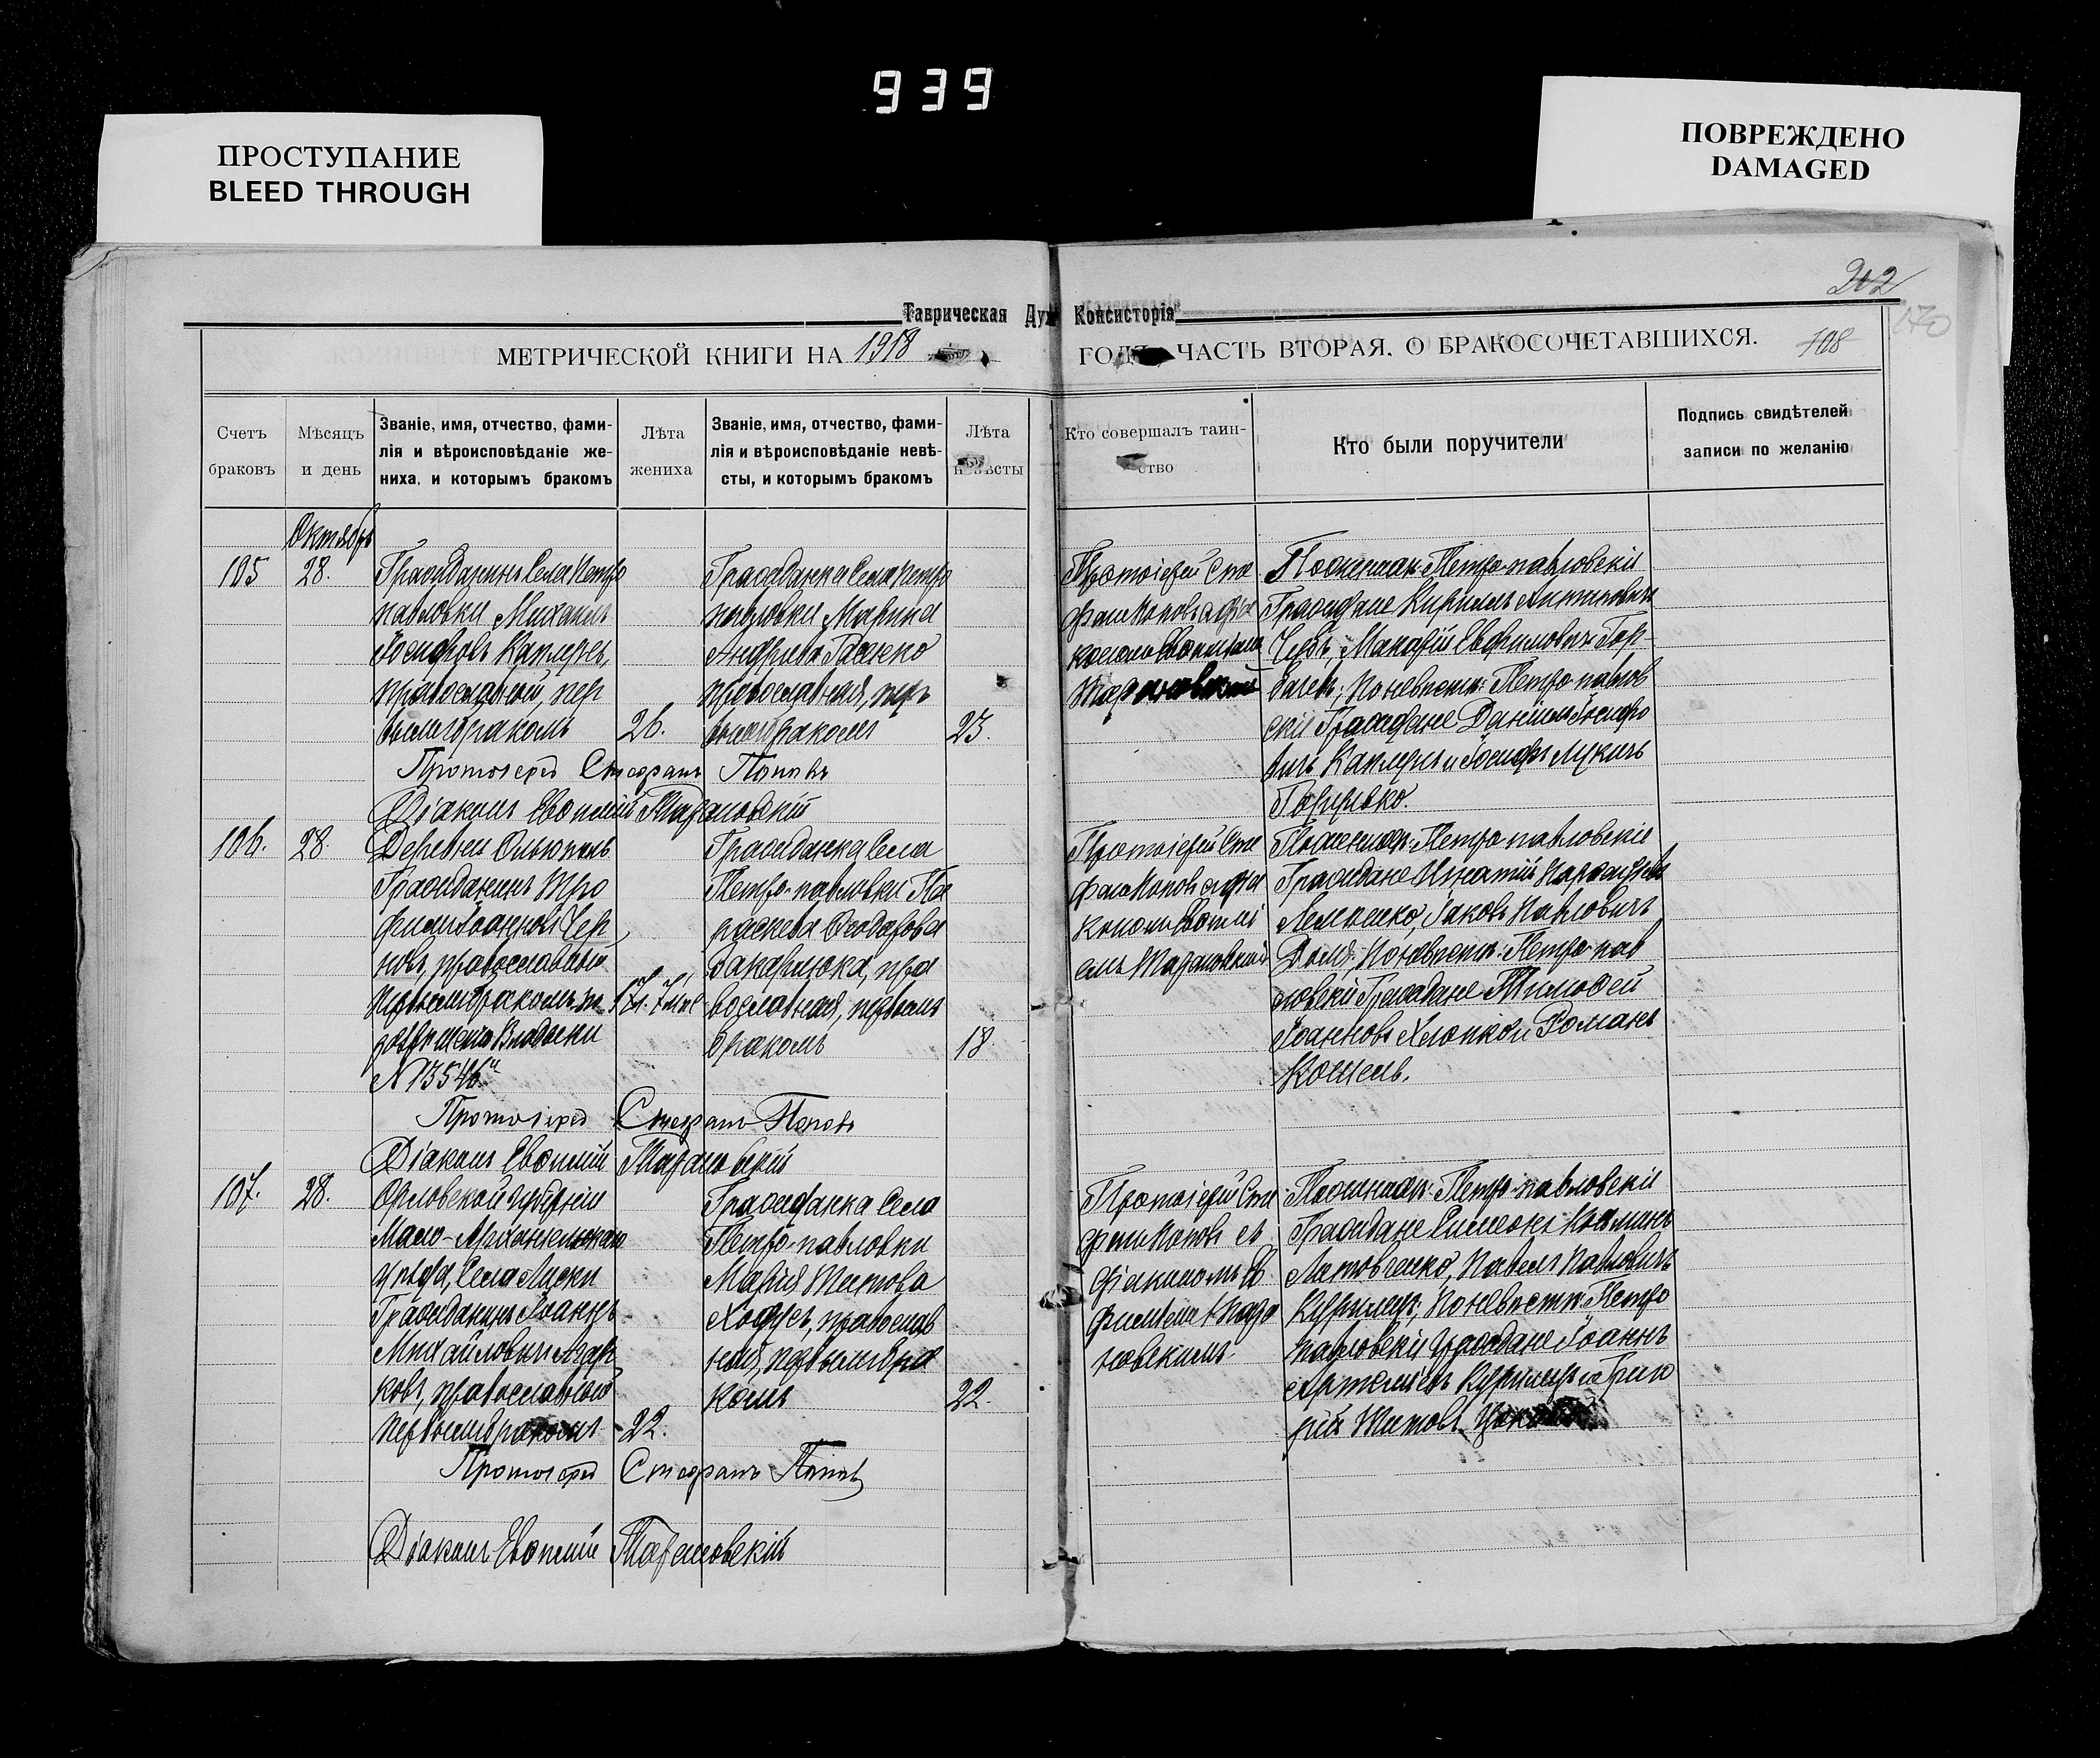 939
ПРОСТУПАНИЕ
BLEED THROUGH
ПОВРЕЖДЕНО
DAMAGED
202
170
Таврическая Дух Консисторія
МЕТРИЧЕСКОЙ КНИГИ НА 1918
ГОДЪ ЧАСТЬ ВТОРАЯ. О БРАКОСОЧЕТАВШИХСЯ. 108
Счетъ
браковъ
Мѣсяцъ
и день
Званіе, имя, отчество, фами-
лія и вѣроисповѣданіе же-
ниха, и которымъ бракомъ
Лѣта
жениха
Званіе, имя, отчество, фами-
лія и вѣроисповѣданіе невѣ-
сты, и которымъ бракомъ
Лѣта
невѣсты
Кто совершалъ таин-
ство
Кто были поручители
Подпись свидѣтелей
записи по желанію
Октябрь
105
28.
Гражданинъ Села Петро
павловки Михаилъ
Іосифовъ
православный, пер
вымъ бракомъ
26.
Гражданка Села Петро
павловки Марина
православная, пер
вымъ бракомъ
23.
Протоіерей Сте
фанъ Поповъ съ діа
кономъ
По женихѣ: Петро-павловскіе
Граждане Кириллъ
Макарій Евфимовичъ Гор-
по невѣстѣ: Петро-павлов
скіе Граждане Даніилъ Іосифо
вичъ и Іосифъ Лукичъ
Протоіерей Стефанъ Поповъ
Діаконъ Евѳимій Тарановскій
106.
28.
Деревни
Гражданинъ Тро
фимъ Іоанновъ Чер
новъ, православный
первымъ бракомъ, по
разрѣшенію Владыки
N 13546
17 л. 7 мѣс
Гражданка Села
Петро-павловки Па
раскева Ѳеодорова
Захарлюка, пра
вославная, первымъ
бракомъ
18
Протоіерей Сте
фанъ Поповъ съ діа
кономъ Евѳимі
емъ Тарановскимъ
По женихѣ: Петро-павловскіе
Граждане Игнатій
Яковъ Павловичъ
по невѣстѣ: Петро-пав
ловскіе Граждане Тимофей
Іоанновъ и Романъ
Протоіерей Стефанъ Поповъ
Діаконъ Евѳимій Тарановскій
107.
28.
Орловской губерніи
Мало-Архангельскаго
уѣзда, Села
Гражданинъ Іоаннъ
Михайловичъ Азар
ковъ, православный
первымъ бракомъ
22.
Гражданка Села
Петро-павловки
Марія Титова
православ
ная, первымъ бра
комъ
22.
Протоіерей Сте
фанъ Поповъ съ
діакономъ Ев
фиміемъ Тара
новскимъ
По женихѣ: Петро-павловскіе
Граждане Симеонъ
Павелъ Павловичъ
по невѣстѣ: Петро
павловскіе граждане Іоаннъ
и Григо
рій Титовъ
Протоіерей Стефанъ Поповъ
Діаконъ Евѳимій Тарановскій